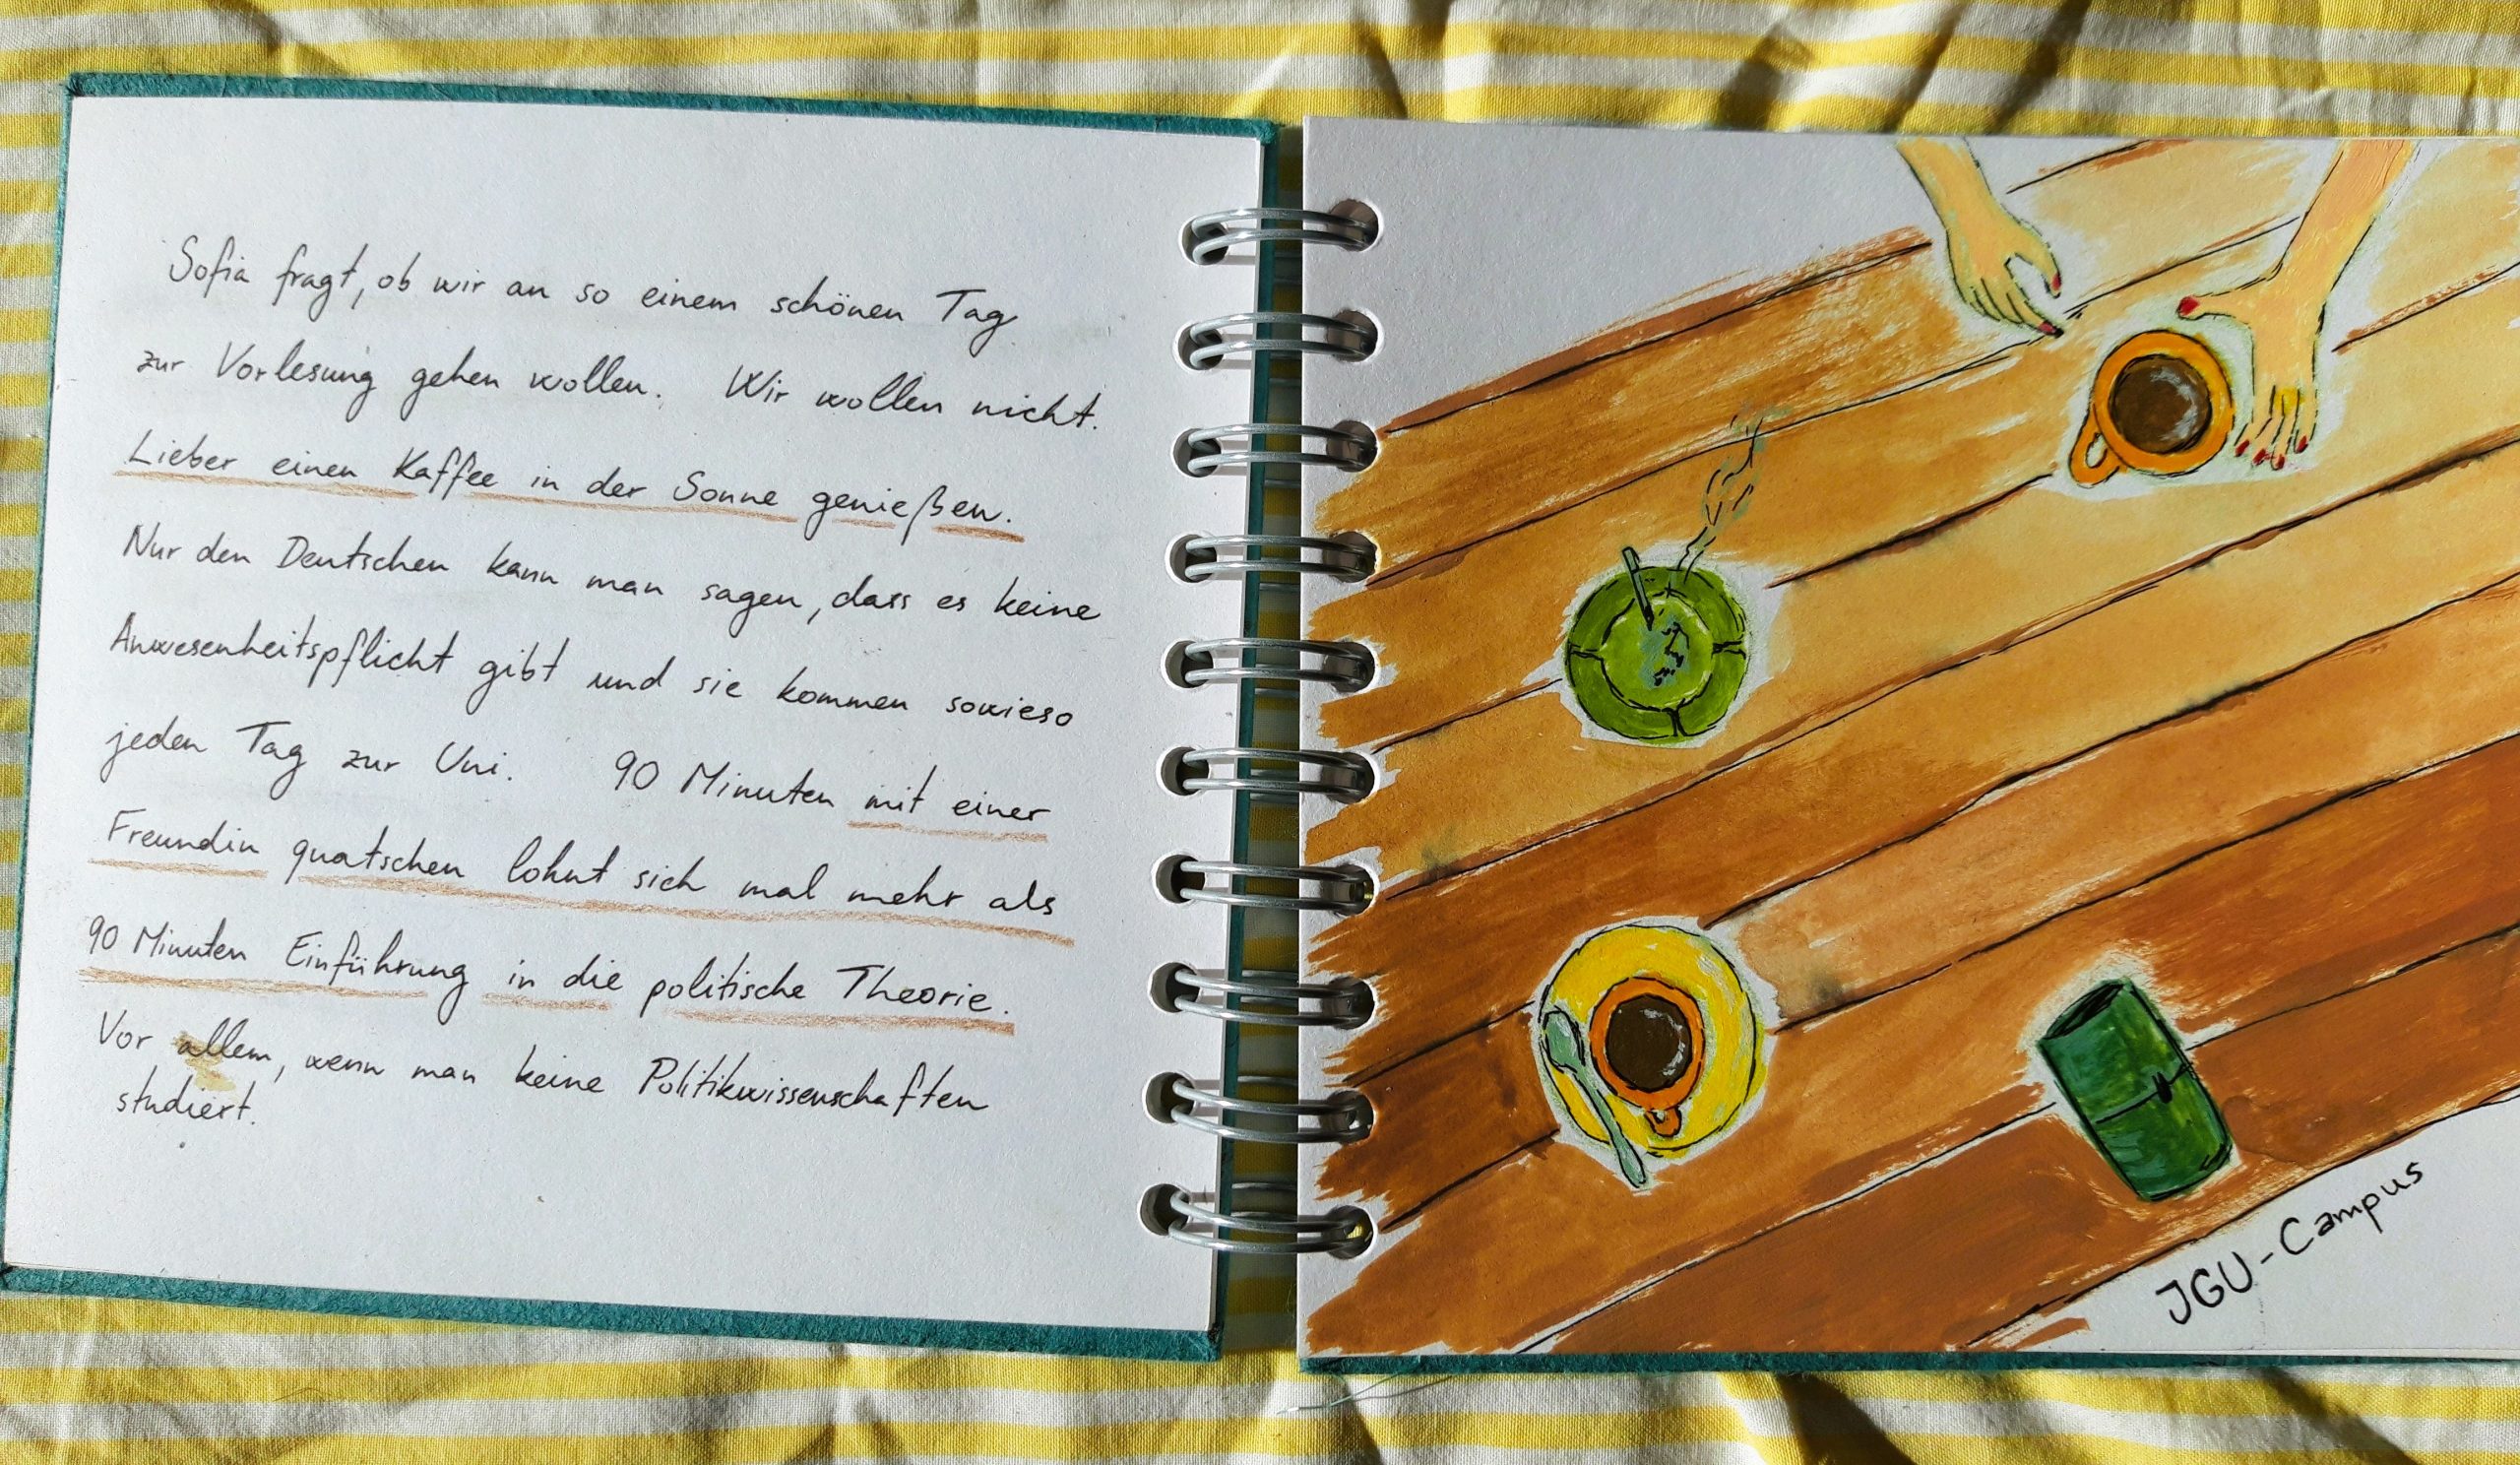 Sofia fragt, ob wir an so einem schönen Tag
zur Vorlesung gehen wollen. Wir wollen nicht.
Lieber einen Kaffee in der Sonne genießen.
Nur den Deutschen kann man sagen, dass es keine
Anwesenheitspflicht gibt und sie kommen sowieso
jeden Tag zur Uni. 90 Minuten mit einer
Freundin quatschen lohnt sich mal mehr als
90 Minuten Einführung in die politische Theorie.
Vor allem, wenn man keine Politikwissenschaften
studiert.
JGU-Campus